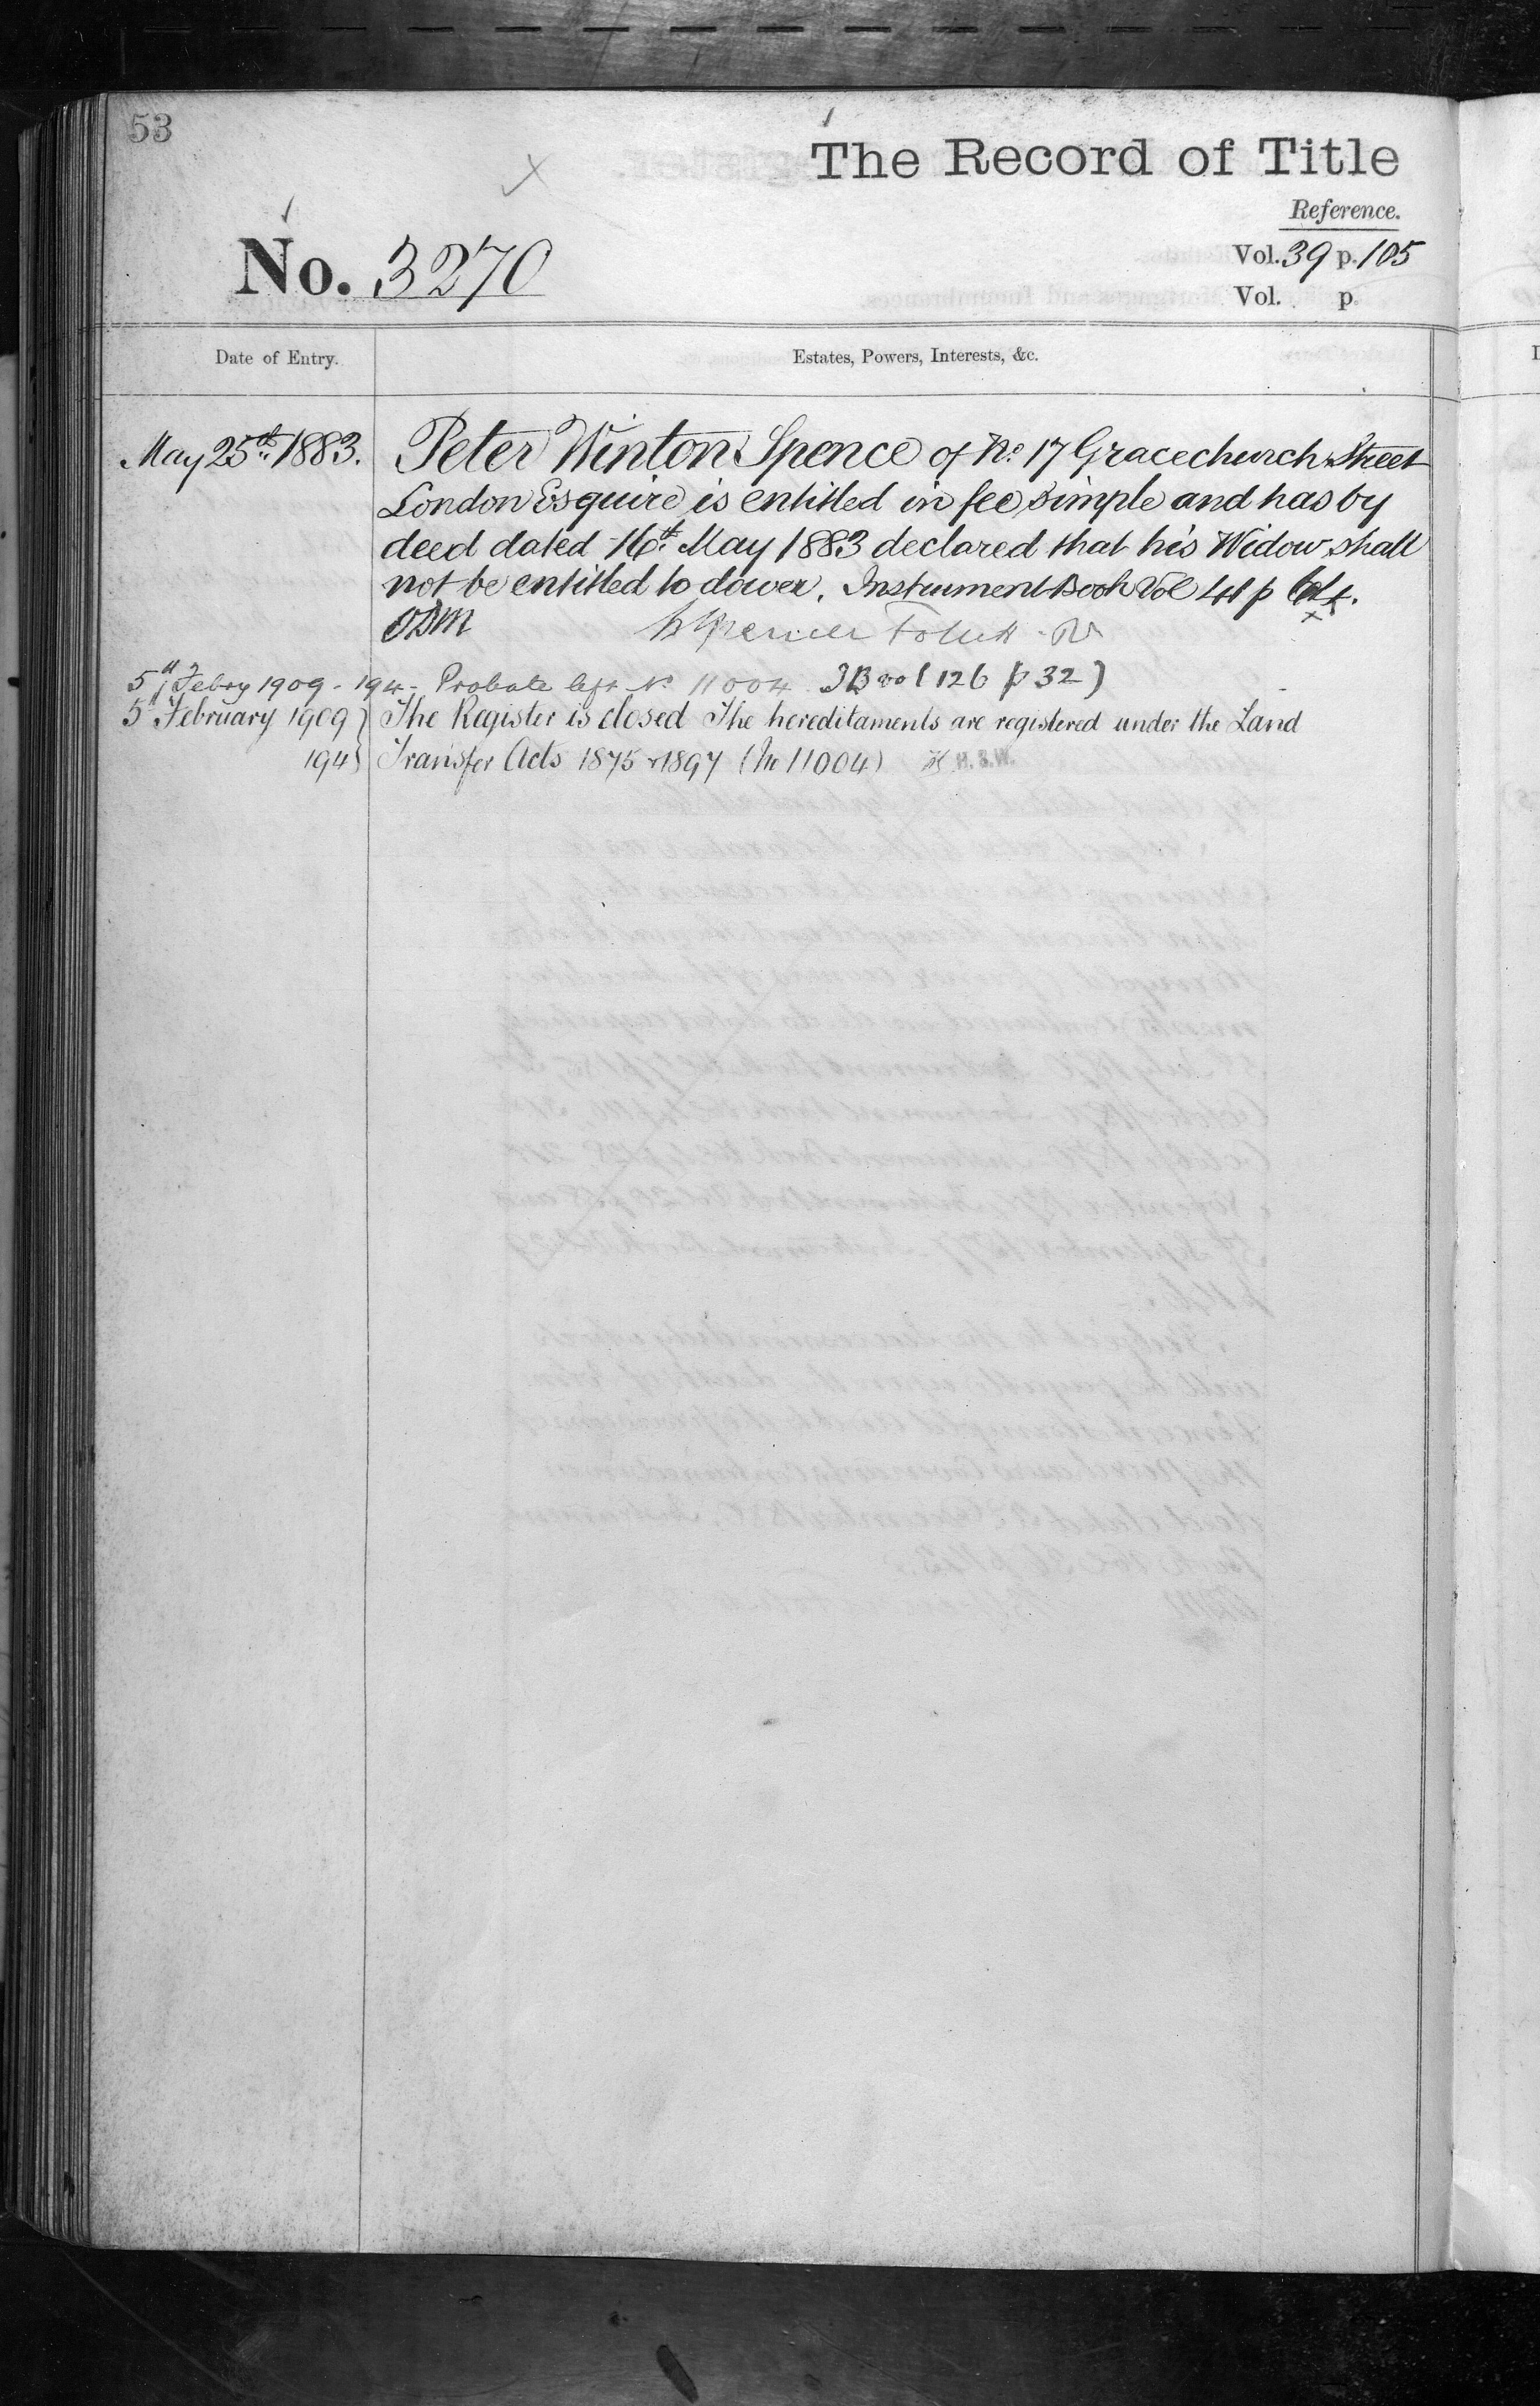 53
The Record of Title
Reference.
No. 3270
Vol. 39 p. 105
Vol. p.
Date of Entry.
Estates, Powers, Interests, &c.
May 25th 1883.
Peter Winton Spence of No 17 Gracechurch Street
London Esquire is entitled in fee simple and has by
deed dated 16th May 1883 declared that his Widow shall
not be entitled to dower. Instrument Book Vol 41 p
ODM
5th Febry 1909 - 194 - Probate left No 11004 IB vol 126 p 32)
5th February 1909} The Register is closed The hereditaments are registered under the Land
194} Transfer Acts 1875 & 1897 (No 11004) H.S.W.